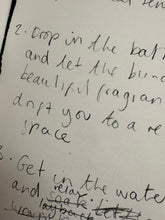 2. Drop in the bat
and let the blend
beautiful fragran
drift you to a re
space
3. Get in the wate
and relax